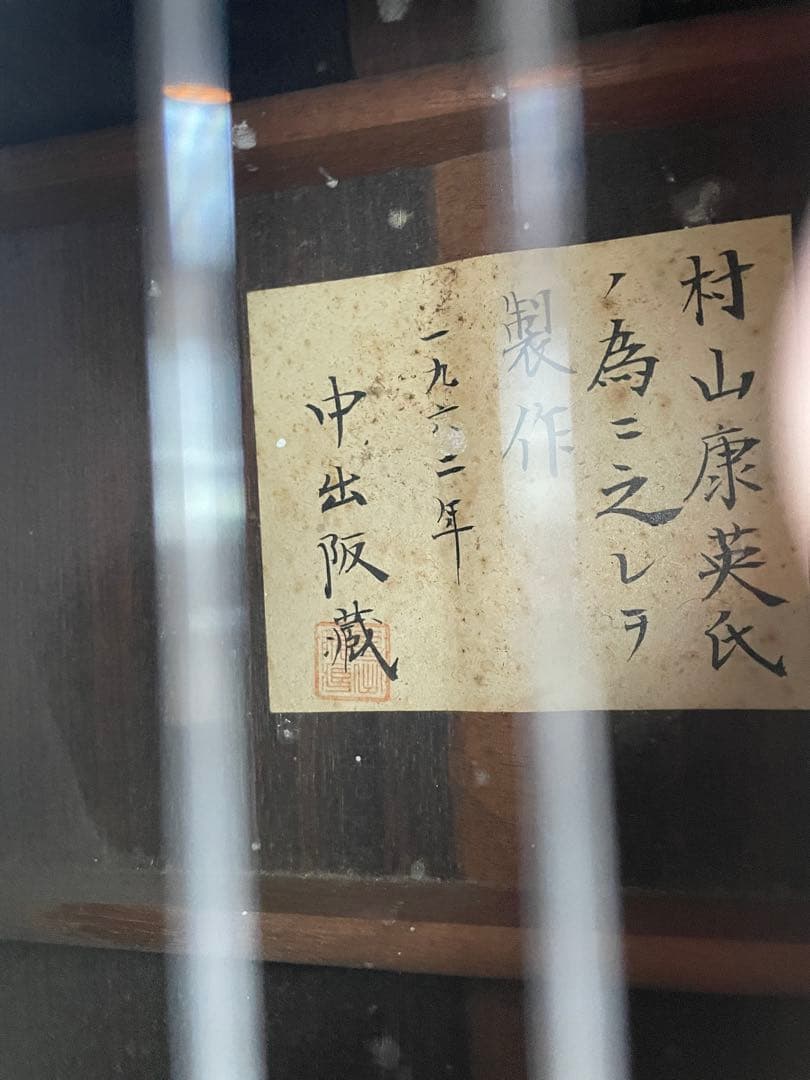 村山康英氏
ノ為ニ之レヲ
製作
一九六二年
中出阪蔵